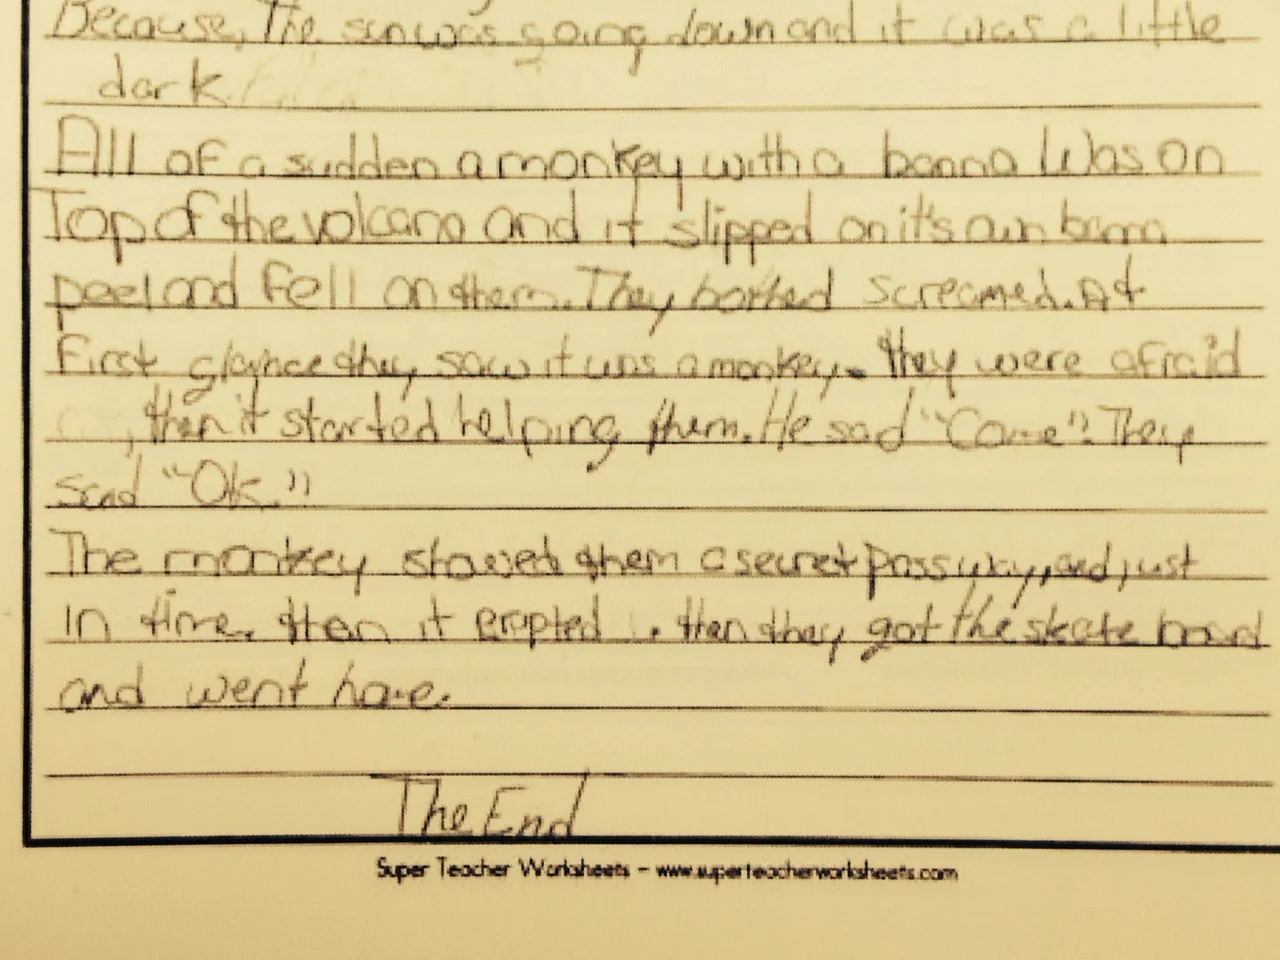 Because, The sun was going down and it was a little
dark.
All of a sudden a monkey with a banna Was on
Top of the volcano and it slipped on it's own banna
peel and fell on them. They bothed screamed. At
First glaynce they saw it was a monkey. they were afraid
, then it started helping them. He sad "Come". They
said "Ok."
The monkey showed them a secret passyway, and just
in time. then it erupted. then they got the skate board
and went home.
The End
Super Teacher Worksheets - www.superteacherworksheets.com